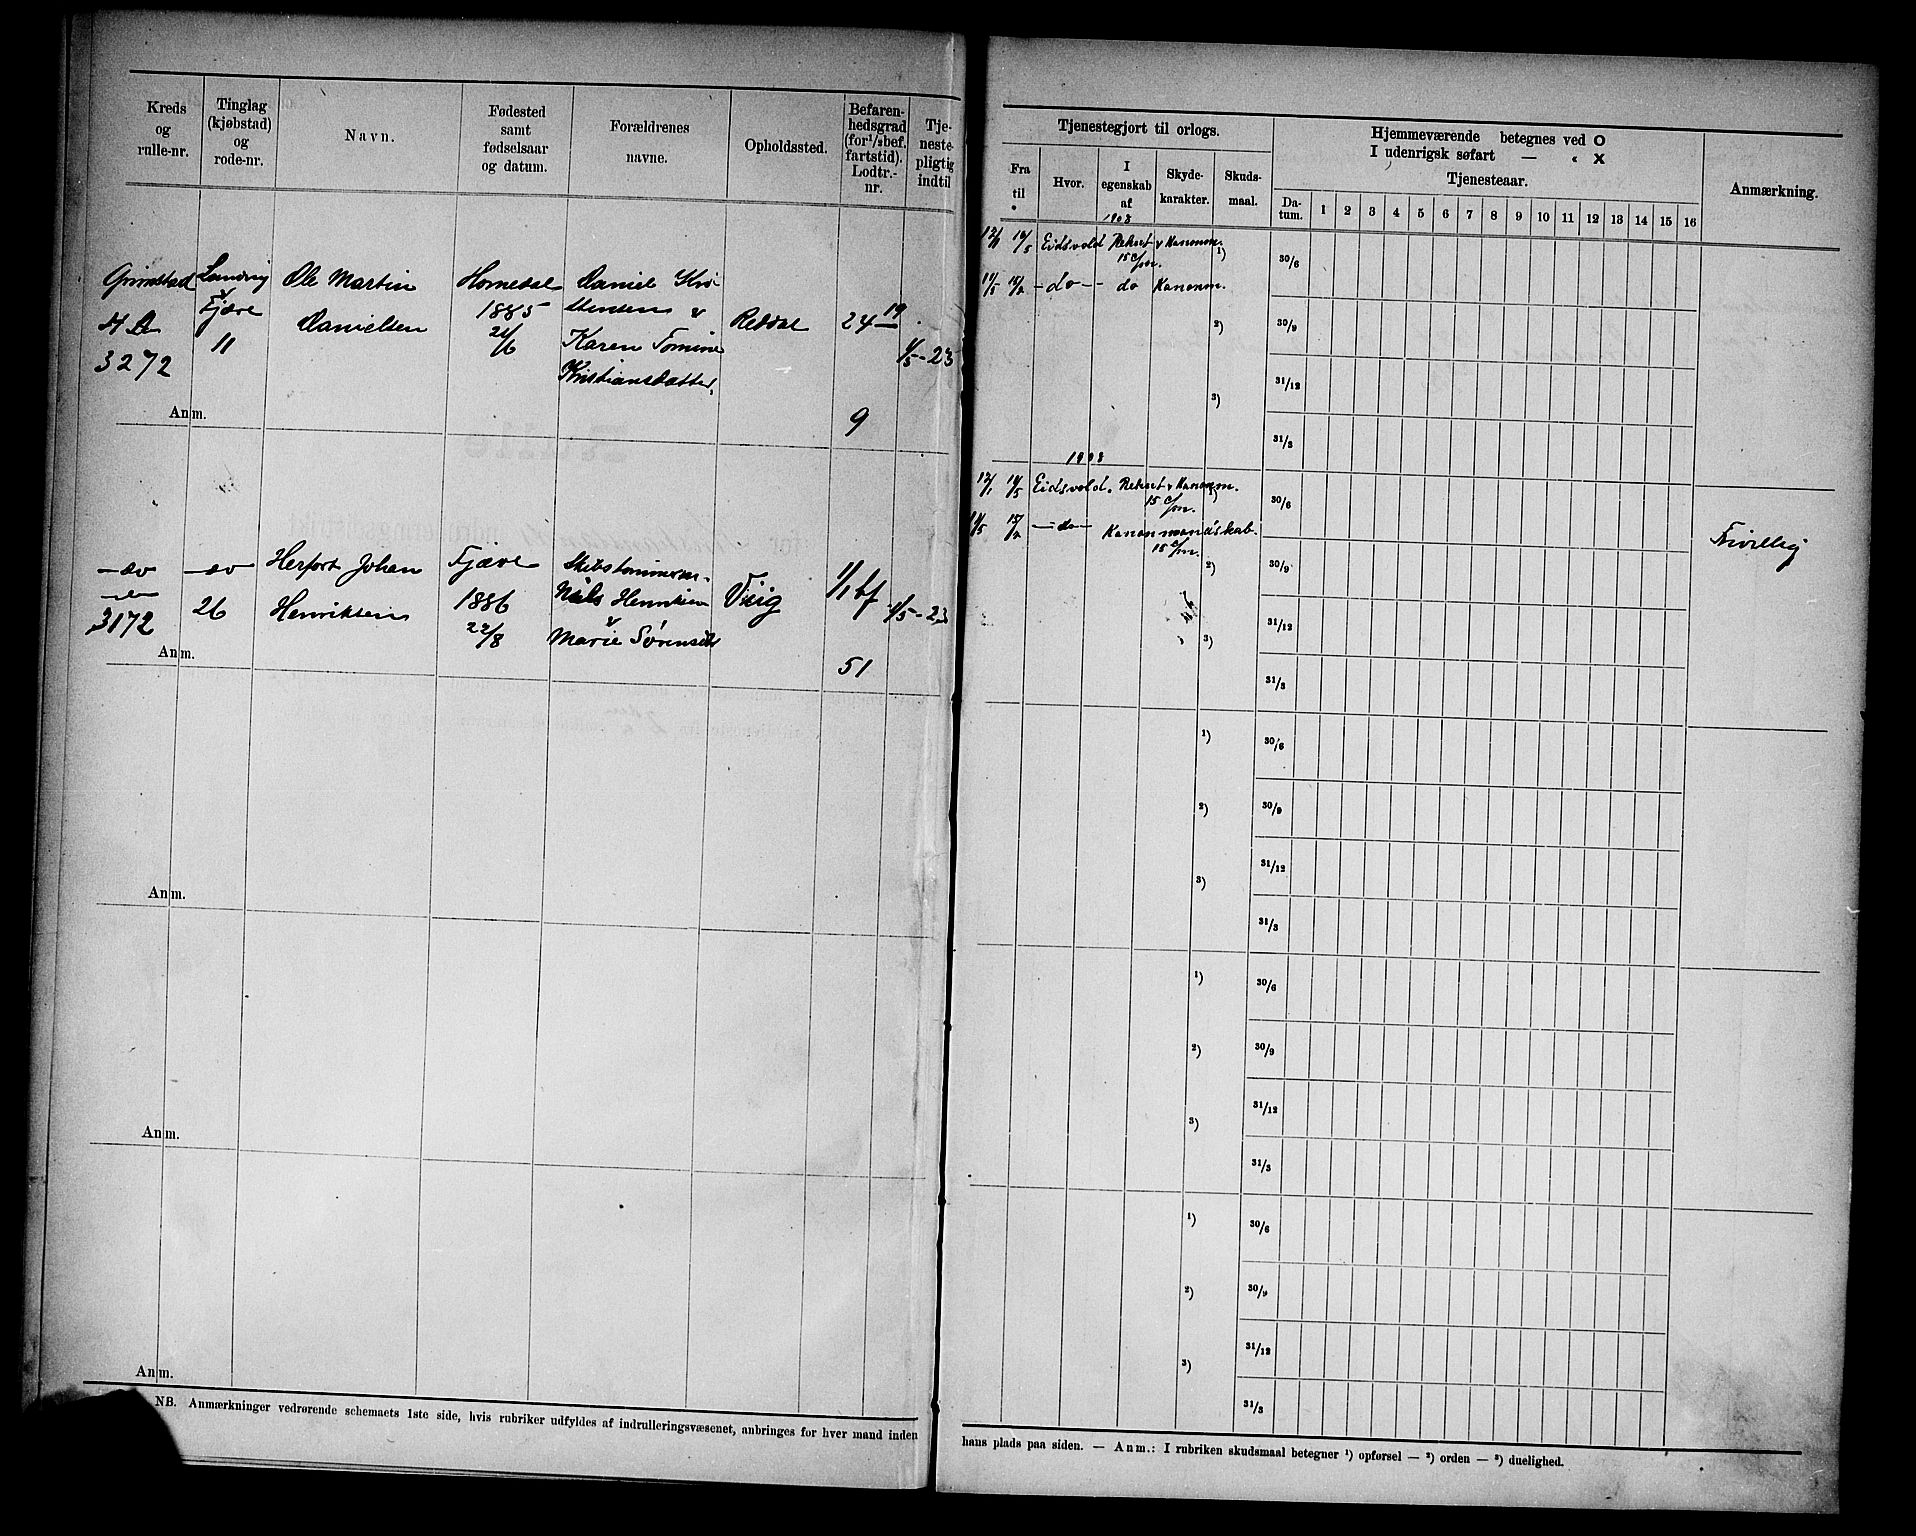 Kreds
og
rulle-nr.
Tinglag
(kjøbstad)
og
rode-nr.
Navn.
Fødested
samt
fødselsaar
og datum.
Forældrenes
navne.
Opholdssted.
Befaren-
hedsgrad
(for 1/2 bef.
fartstid).
Lodtr.-
nr.
Tje-
neste-
pligtig
indtil
Grimstad
3272
Landvig
v
Fjære
11
Ole Martin
Danielsen
Homedal
1885
24/6
Daniel Kri-
stensen v
Karen Tomine
Kristiansdatter
Reddal
24 19
9
1/5-23
Anm.
3172
26
Herfort Johan
Henriksen
Fjære
1886
22/8
Skibstømmerm.
Nils Henriksen
v
Marie Sørensdtr
Vig
1/1 bf
51
1/5-23
Anm.
Anm.
Anm.
Anm.
NB. Anmærkninger vedrørende schemaets 1ste side, hvis rubriker udfyldes af indrulleringsvæsenet, anbringes for hver mand inden
Tjenestegjort til orlogs.
Fra
til
Hvor.
I
egenskab
af
Skyde-
karakter.
Skuds-
maal.
Hjemmeværende betegnes ved O
I udenrigsk søfart — « X
Tjenesteaar.
Da-
tum.
1 2 3 4 5 6 7 8 9 10 11 12 13 14 15 16
Anmærkning.
1908
12/1 10/5 Eidsvold Rekrut v Kanonm. 1)
15 c/m.
11/5 15/2 -do- do Kanonm.
2)
3)
30/6
30/9
31/12
31/3
1908
12/1 10/5 Eidsvold. Rekrut v Kanonm. 1)
15 c/m.
11/5 15/2 -do- Kanonmandskab.
15 c/m.
2)
3)
30/6
30/9
31/12
31/3
Frivillig
1)
2)
3)
30/6
30/9
31/12
31/3
1)
2)
3)
30/6
30/9
31/12
31/3
1)
2)
3)
30/6
30/9
31/12
31/3
hans plads paa siden. — Anm.: I rubriken skudsmaal betegner 1) opførsel — 2) orden — 3) duelighed.